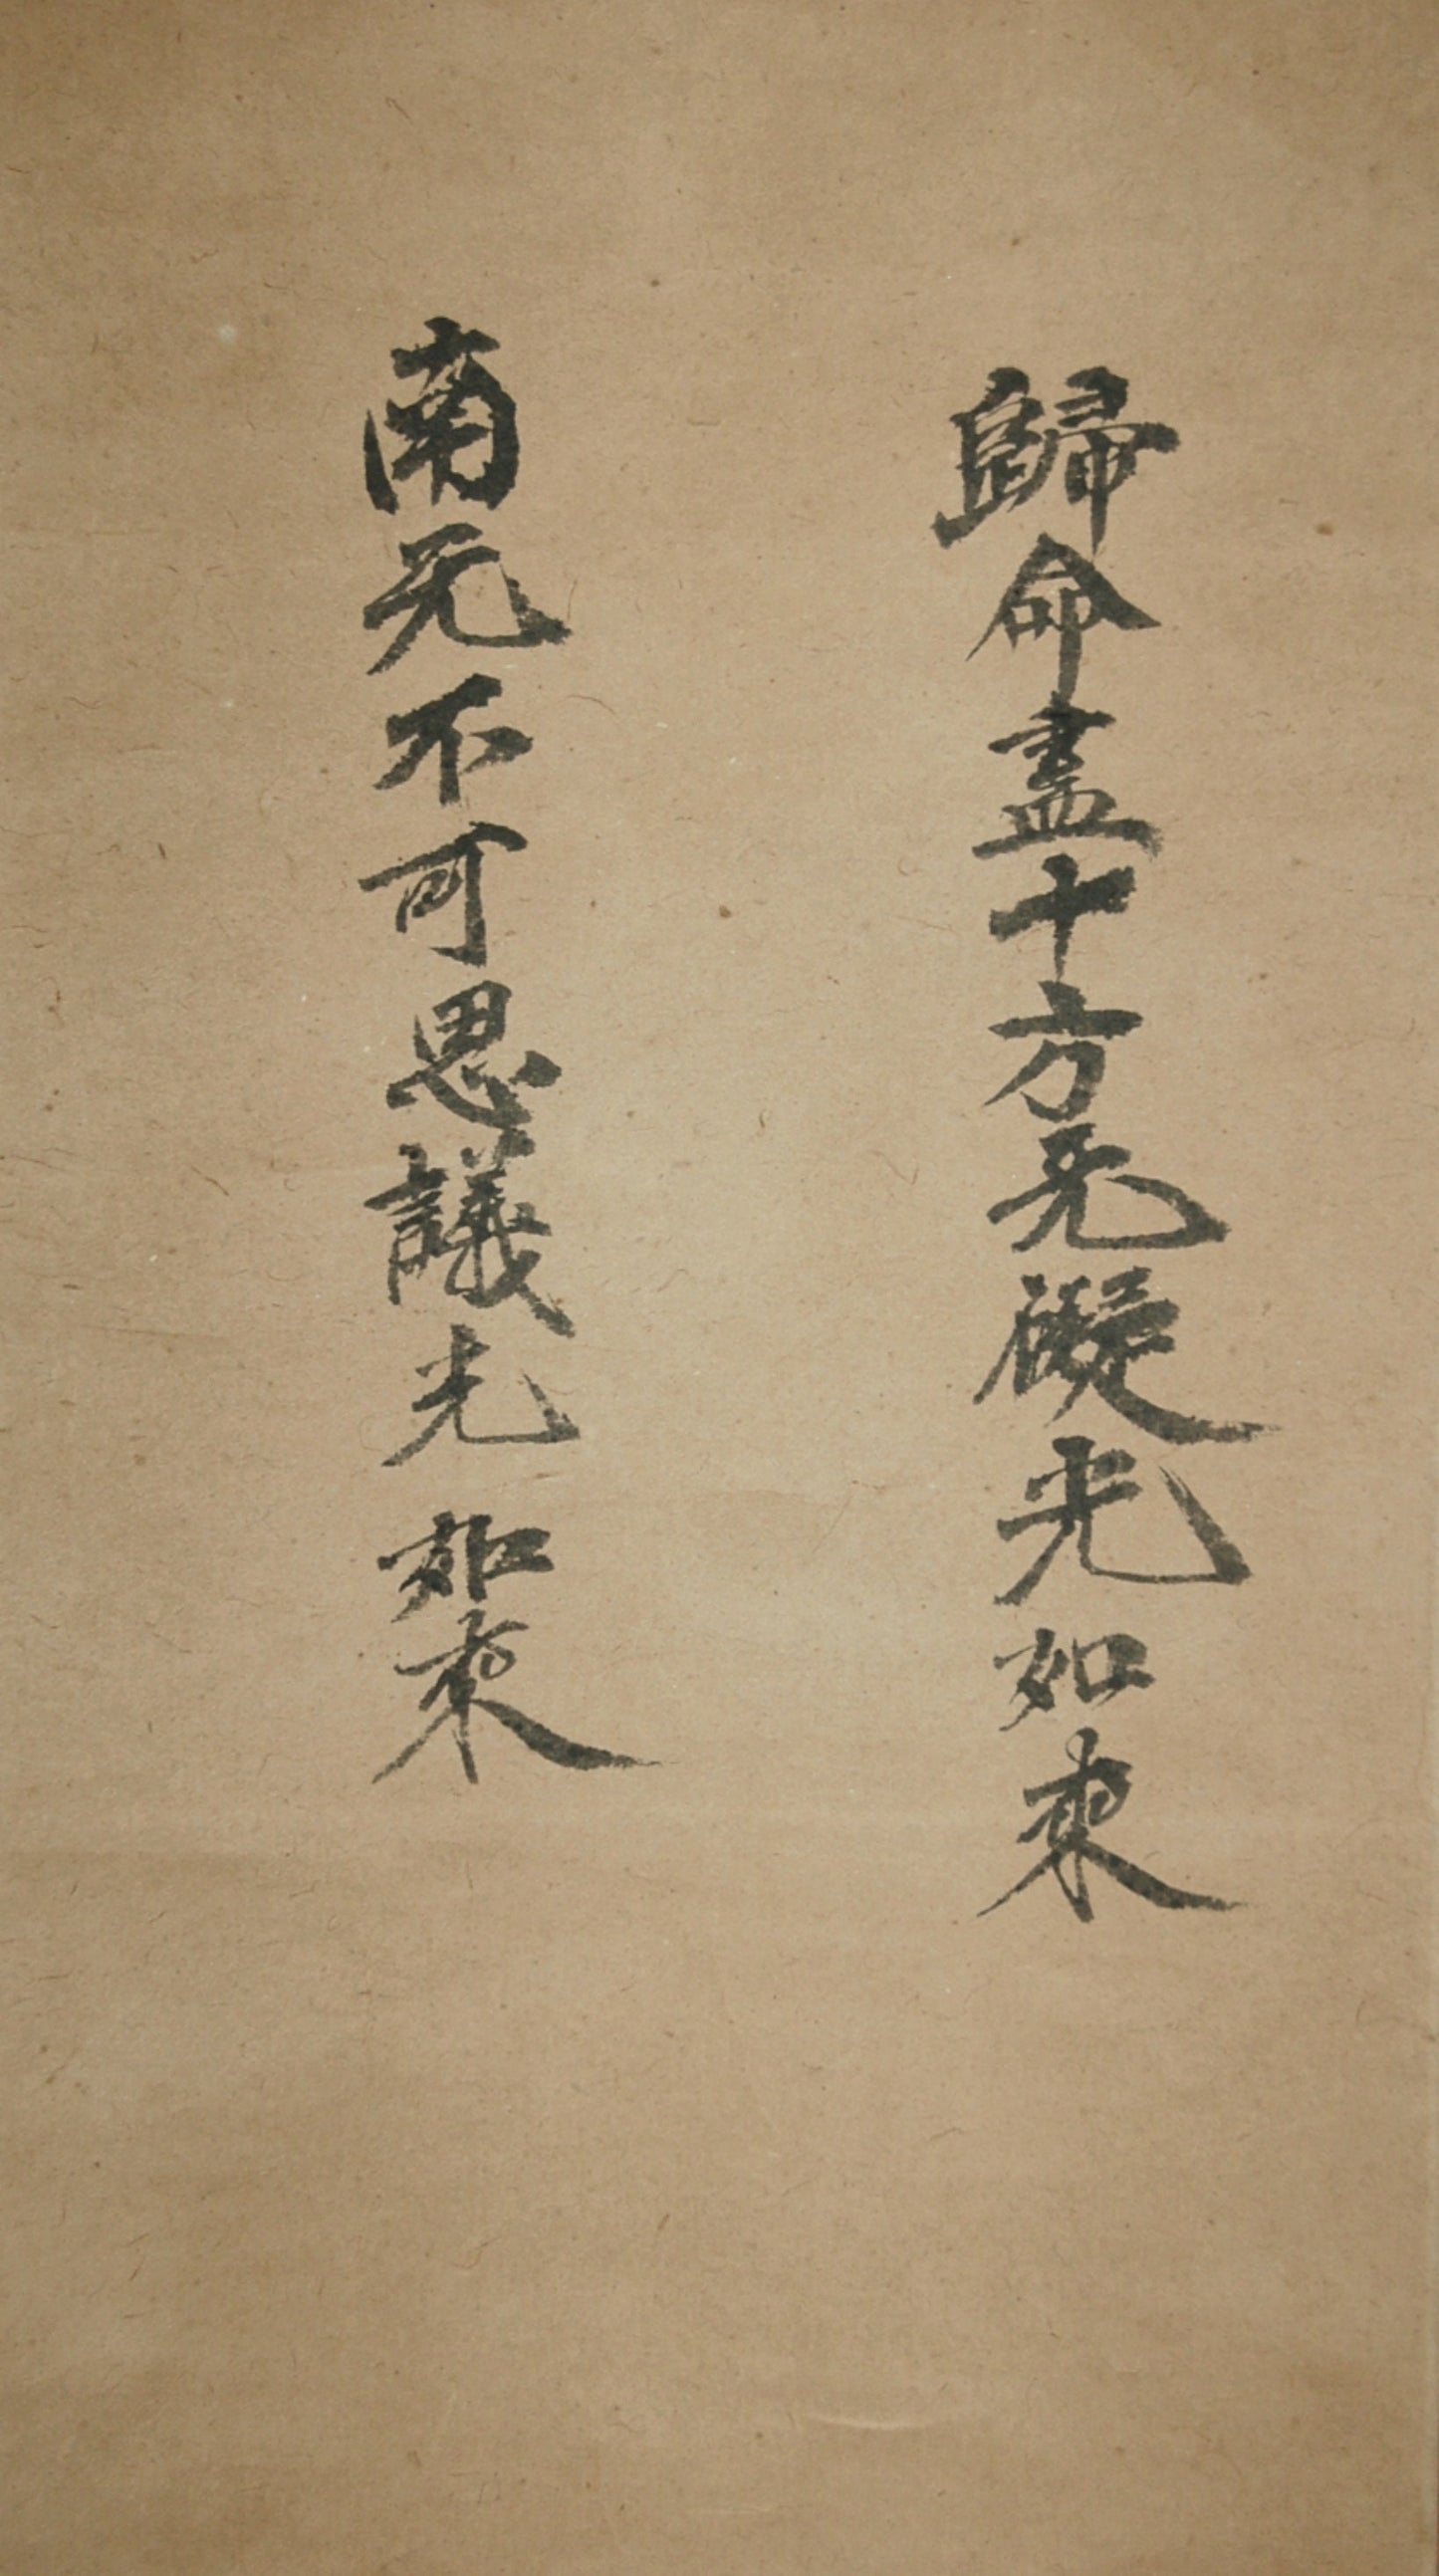 歸命盡十方无礙光如来
南无不可思議光如来